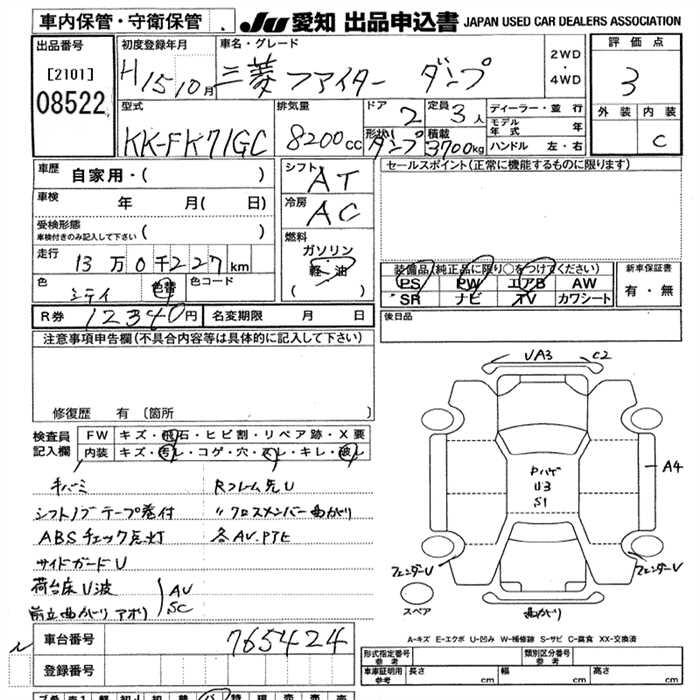 車内保管・守衛保管
JU 愛知 出品申込書 JAPAN USED CAR DEALERS ASSOCIATION
出品番号
[2101]
08522
初度登録年月
H15 10月
車名・グレード
三菱 ファイター ダンプ
2WD
・
4WD
評価点
3
外装 内装
C
型式
KK-FK71GC
排気量
8200cc
ドア
2
定員
3人
形状
ダンプ
積載
3700kg
ディーラー・並行
モデル年式 年
ハンドル 左・右
車歴
自家用・( )
車検
年 月(日)
受検形態
車検付きのみ記入して下さい ( )
走行
13万0千227km
色
シロイ
色替
色コード
シフト
AT
冷房
AC
燃料
ガソリン
軽油
( )
R券 12340円 名変期限 月 日
セールスポイント(正常に機能するものに限ります)
装備品(純正品に限り○をつけてください)
PS PW エアB AW
SR ナビ TV カワシート
新車保証書
有・無
後日品
注意事項申告欄(不具合内容等は具体的に記入して下さい)
修復歴 有 〔箇所
検査員記入欄
FW キズ・飛石・ヒビ割・リペア跡・X要
内装 キズ・汚レ・コゲ・穴・スレ・キレ・破レ
キバミ
シフトノブテープ巻付
ABSチェック点灯
サイドガードU
荷台床U波
前立曲がり アオリ
AU
SC
Rフレーム先U
〃クロスメンバー曲がり
各AU.PTE
UA3 C2
A4
PハゲU3
S1
フェンダーU
フェンダーU
曲がり
スペア
A-キズ E-エクボ U-凹み W-補修跡 S-サビ C-腐食 XX-交換済
車台番号
765424
登録番号
形式指定番号
参考
類別区分番号
参考
車庫証明用
参考
長さ cm 幅 cm 高さ cm